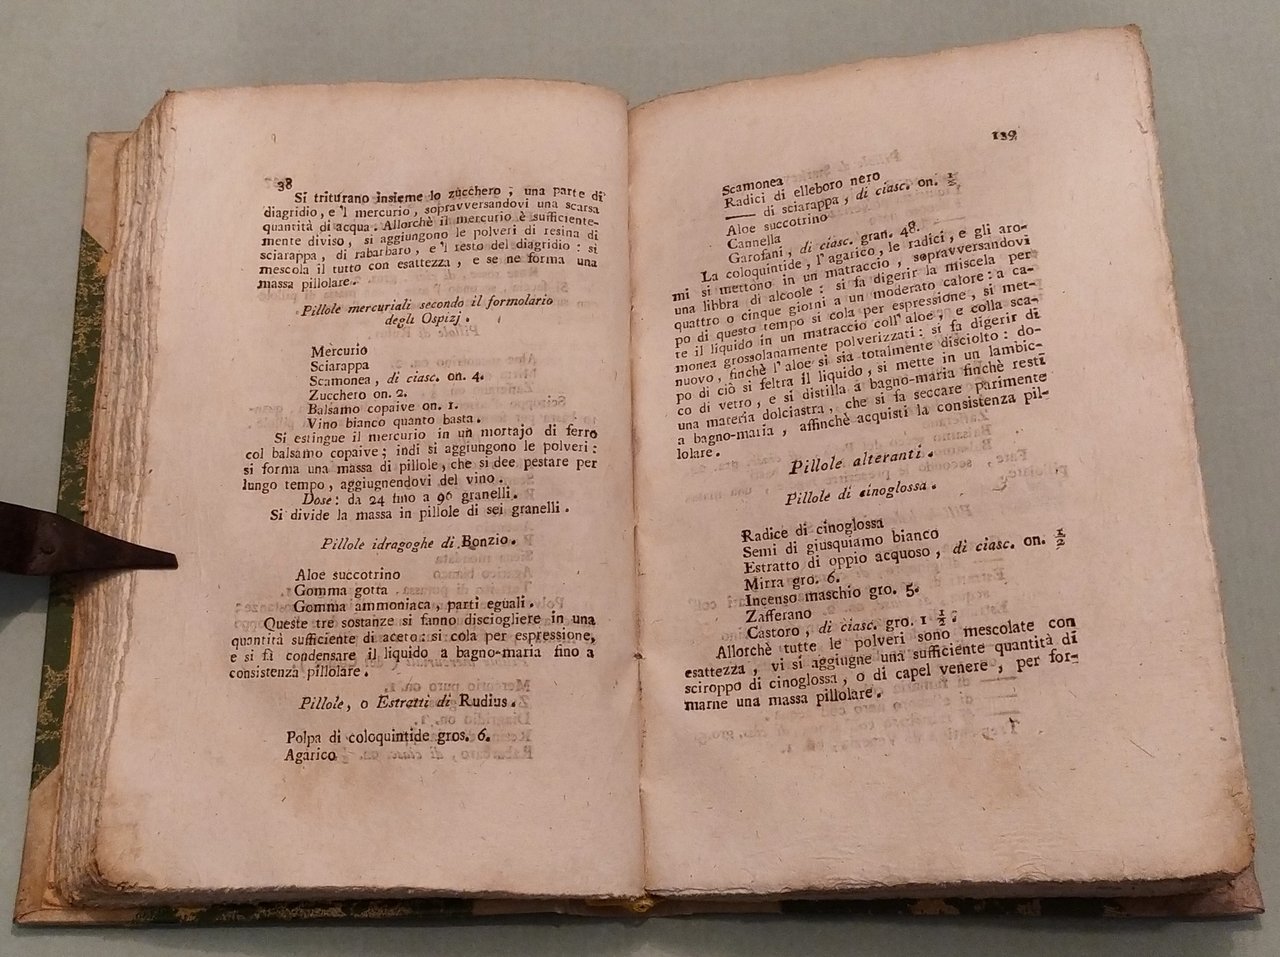 38
Si triturano insieme lo zucchero, una parte di
diagridio, e 'l mercurio, sopravversandovi una scarsa
quantità di acqua. Allorchè il mercurio è sufficiente-
mente diviso, si aggiungono le polveri di resina di
sciarappa, di rabarbaro, e 'l resto del diagridio: si
mescola il tutto con esattezza, e se ne forma una
massa pillolare.
Pillole mercuriali secondo il formolario
degli Ospizj.
Mercurio
Sciarappa
Scamonea, di ciasc. on. 4.
Zucchero on. 2.
Balsamo copaive on. 1.
Vino bianco quanto basta.
Si estingue il mercurio in un mortajo di ferro
col balsamo copaive; indi si aggiungono le polveri:
si forma una massa di pillole, che si dee pestare per
lungo tempo, aggiugnendovi del vino.
Dose: da 24 fino a 96 granelli.
Si divide la massa in pillole di sei granelli.
Pillole idragoghe di Bonzio.
Aloe succotrino
Gomma gotta
Gomma ammoniaca, parti eguali.
Queste tre sostanze si fanno disciogliere in una
quantità sufficiente di aceto: si cola per espressione,
e si fà condensare il liquido a bagno-maria fino a
consistenza pillolare.
Pillole, o Estratti di Rudius.
Polpa di coloquintide gros. 6.
Agarico
139
Scamonea
Radici di elleboro nero
—— di sciarappa, di ciasc. on. 1/2
Aloe succotrino
Cannella
Garofani, di ciasc. gran. 48.
La coloquintide, l'agarico, le radici, e gli aro-
mi si mettono in un matraccio, sopravversandovi
una libbra di alcoole: si fa digerir la miscela per
quattro o cinque giorni a un moderato calore: a ca-
po di questo tempo si cola per espressione, si met-
te il liquido in un matraccio coll'aloe, e colla sca-
monea grossolanamente polverizzati: si fa digerir di
nuovo, finchè l'aloe si sia totalmente disciolto: do-
po di ciò si feltra il liquido, si mette in un lambic-
co di vetro, e si distilla a bagno-maria finchè resti
una materia dolciastra, che si fa seccare parimente
a bagno-maria, affinchè acquisti la consistenza pil-
lolare.
Pillole alteranti.
Pillole di cinoglossa.
Radice di cinoglossa
Semi di giusquiamo bianco
Estratto di oppio acquoso, di ciasc. on. 1/2
Mirra gro. 6.
Incenso maschio gro. 5.
Zafferano
Castoro, di ciasc. gro. 1 1/2:
Allorchè tutte le polveri sono mescolate con
esattezza, vi si aggiugne una sufficiente quantità di
sciroppo di cinoglossa, o di capel venere, per for-
marne una massa pillolare.